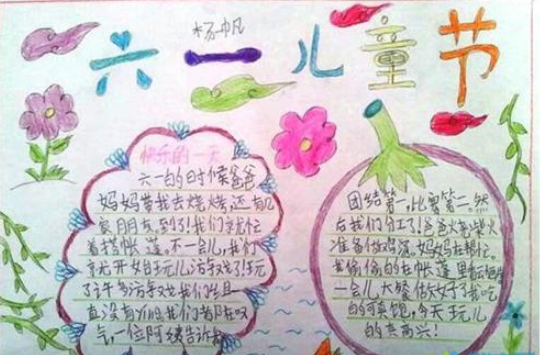 杨帆
六一儿童节
快乐的一天
六一的时候爸爸
妈妈带我去烧烤,还有几
家朋友,到了!我们就忙
着搭帐蓬。不一会儿,我们
就开始玩儿游戏了!玩
了许多游戏,我们
直没有 我们都在叹
气,一位阿姨告诉
团结第一,比赛第二。然
后我们分工了!爸爸火
准备做鸡蛋。妈妈在帮忙。
我偷偷的在帐蓬里
一会儿,大餐做好了我吃
的可真饱,今天玩儿
的真高兴!